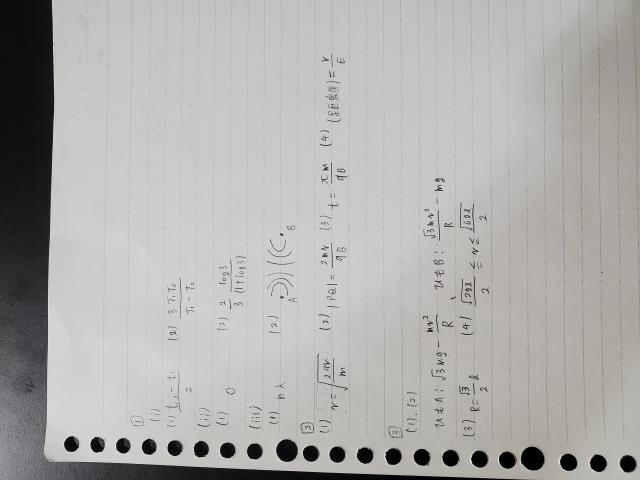 1
(i)
(1) (t₂ - t₁)/2 (2) 3T₁T₂/(T₁ - T₂)
(ii)
(1) 0 (2) 2/3 log3/(1+log3)
(iii)
(1) nλ (2) A B
2
(1) v = √(2qV/m) (2) |PQ| = 2mv/qB (3) t = πm/qB (4) = v/E
3
(1), (2)
A: √3mg - mv²/R B: √3mv²/R - mg
(3) R = √3/2 l (4) √(2gl)/2 ≦ v ≦ √(6gl)/2